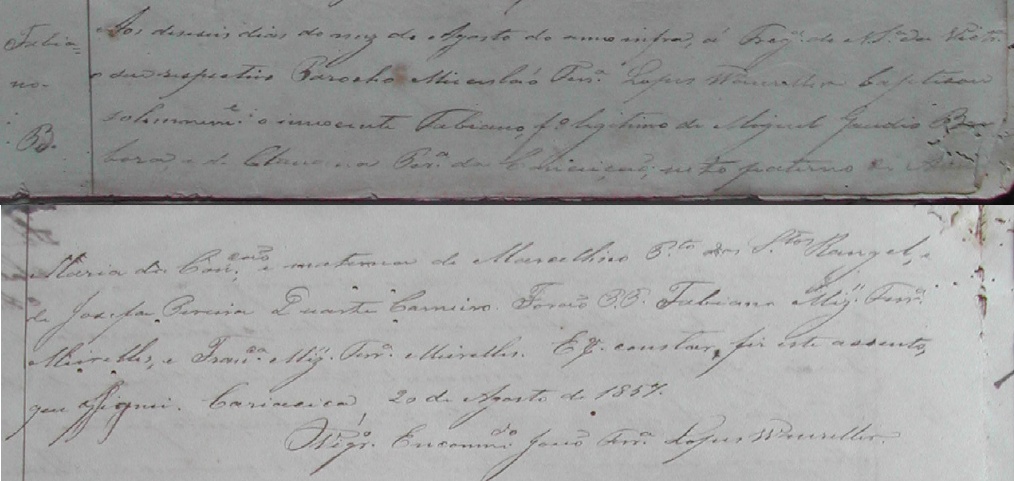 Fabia=
no.
B.
Aos deseseis dias do mez de Agosto do anno infra, á Freg.ª de N. S.ª da Vict.ª
o seu respectivo Parocho Micisláo Ferr.ª Lopes Wanzeller baptisou
solemnem.e o innocente Fabiano, f.º legitimo de Miguel Barbosa
bora, e de Ferr.ª da Conceição, neto paterno de
Maria da Con.ceição e materno de Marcellino P.to dos S.tos Rangel, e
de Josefa Pereira Duarte Carneiro. Forão P.P. Fabiano Miz. Ferr.ª
Meirelles, e Fran.ca Miz. Ferr.ª Meirelles. E p.ª constar, fiz este assento,
que assignei. Cariacica 20 de Agosto de 1857.
Vigr.º Encommd.do Ferr.ª Lopes Wanzeller.